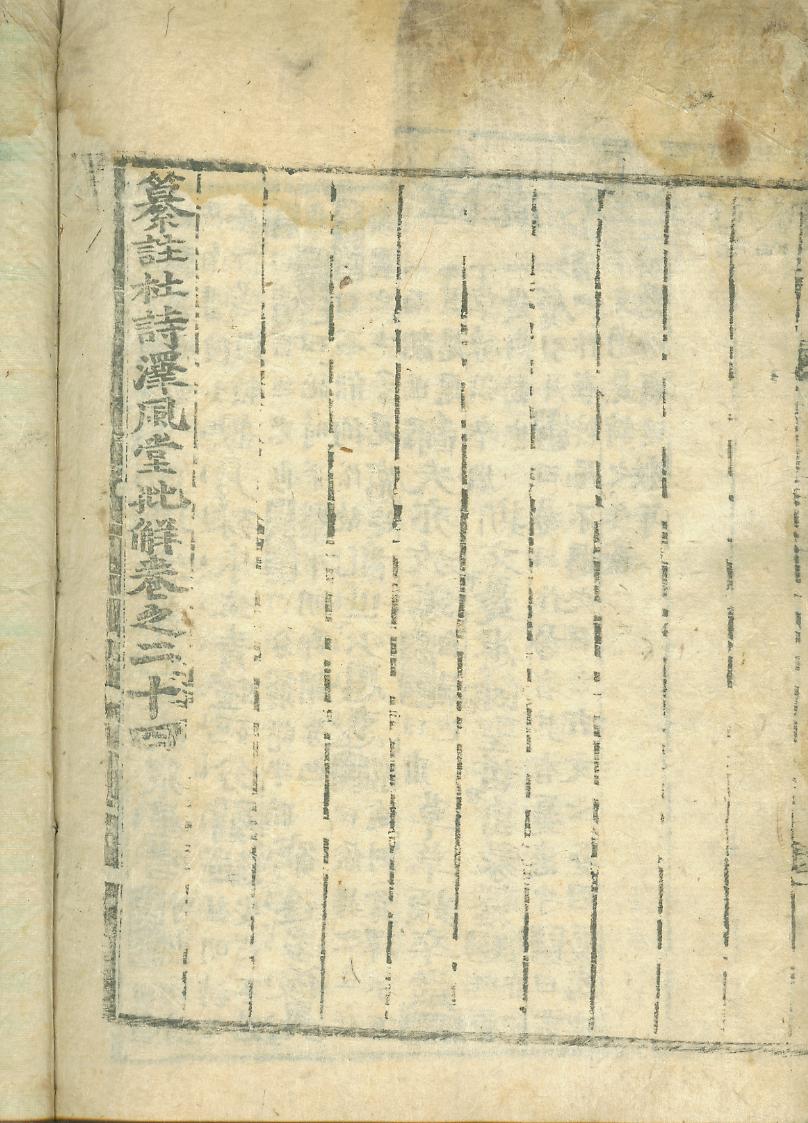 纂註杜詩澤風堂批解卷之二十四